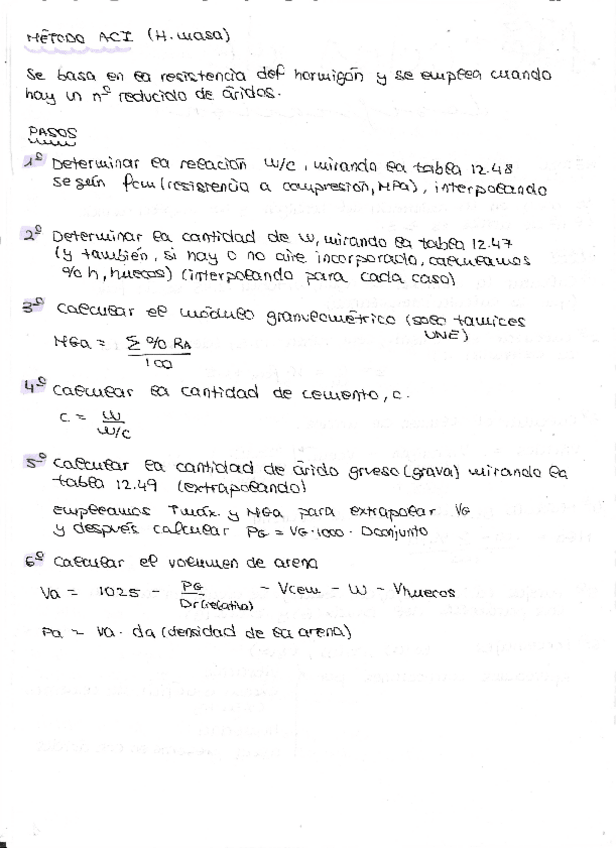 MÉTODO ACI (H. masa)
Se basa en la resistencia del hormigón y se emplea cuando
hay un nº reducido de áridos.
PASOS
1º Determinar la relación w/c, mirando la tabla 12.48
según fcm (resistencia a compresión, MPa), interpolando
2º Determinar la cantidad de w, mirando la tabla 12.47
(y también, si hay o no aire incorporado, calculamos
% h, huecos) (interpolando para cada caso)
3º Calcular el módulo granulométrico (solo tamices
UNE)
MGa = Σ % RA / 100
4º Calcular la cantidad de cemento, c.
c = w / w/c
5º Calcular la cantidad de árido grueso (grava) mirando la
tabla 12.49 (extrapolando)
empleamos Tmáx. y MGa para extrapolar VG
y después calcular PG = VG·1000·Dconjunto
6º Calcular el volumen de arena
Va = 1025 - PG / Dr(relativa) - Vcem - W - Vhuecos
Pa = Va · da (densidad de la arena)